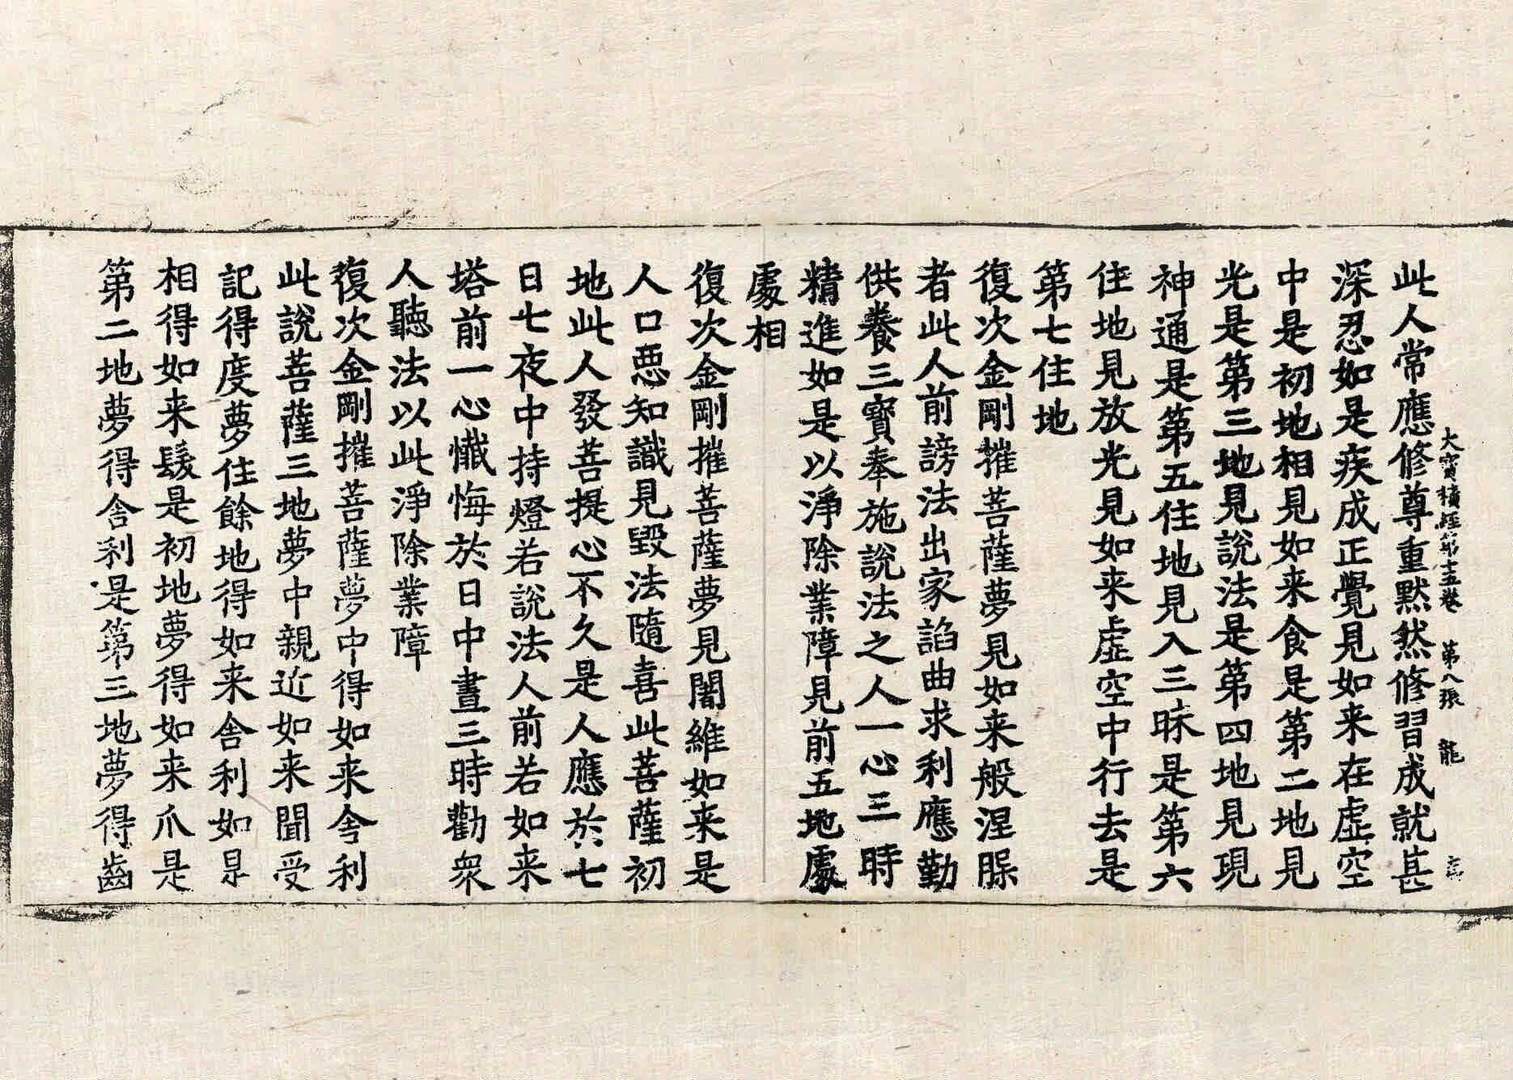 大寶積經第十五卷 第八張 龍
此人常應修尊重默然修習成就甚
深忍如是疾成正覺見如来在虛空
中是初地相見如来食是第二地見
光是第三地見說法是第四地見現
神通是第五住地見入三昧是第六
住地見放光見如来虛空中行去是
第七住地
復次金剛摧菩薩夢見如来般涅槃
者此人前謗法出家諂曲求利應勤
供養三寶奉施說法之人一心三時
精進如是以淨除業障見前五地處
處相
復次金剛摧菩薩夢見闍維如来是
人口惡知識見毀法隨喜此菩薩初
地此人發菩提心不久是人應於七
日七夜中持燈若說法人前若如来
塔前一心懺悔於日中晝三時勸衆
人聽法以此淨除業障
復次金剛摧菩薩夢中得如来舍利
此說菩薩三地夢中親近如来聞受
記得度夢住餘地得如来舍利如是
相得如来髮是初地夢得如来爪是
第二地夢得舍利是第三地夢得齒